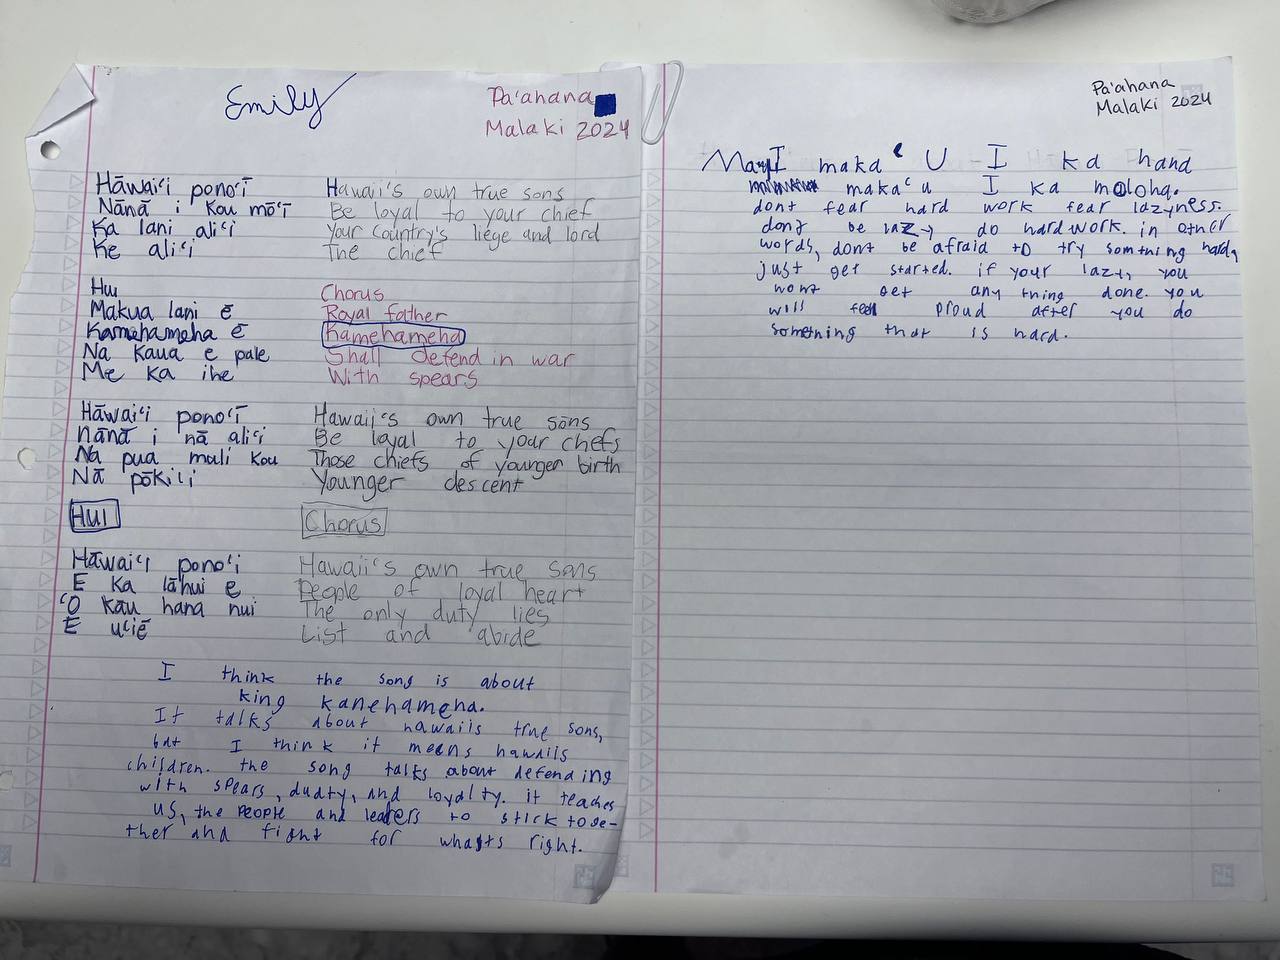 Emily
Pa'ahana
Malaki 2024
Hāwai'i pono'ī
Nānā i kou mō'ī
Ka lani ali'i
Ke ali'i
Hawaii's own true sons
Be loyal to your chief
Your country's liege and lord
The chief
Hui
Makua lani ē
Kamehameha ē
Na kaua e pale
Me ka ihe
Chorus
Royal father
Kamehameha
Shall defend in war
With spears
Hāwai'i pono'ī
nānā i nā ali'i
Na pua muli kou
Nā pōki'i
Hawaii's own true sons
Be loyal to your chefs
Those chiefs of younger birth
Younger descent
Hui
Chorus
Hāwai'i pono'i
E ka lāhui e
'O kāu hana nui
E u'iē
Hawaii's own true sons
People of loyal heart
The only duty lies
List and abide
I think the song is about
king kanehameha.
It talks about hawaiis true sons,
but I think it means hawaiis
children. the song talks about defending
with spears, duaty, and loyalty. it teaches
us, the people and leaders to stick toge-
ther and fight for whats right.
Pa'ahana
Malaki 2024
Mai maka ' U I ka hana
maka'u I ka moloha.
dont fear hard work fear lazyness.
dont be lazy do hard work. in other
words, dont be afraid to try somthing hard,
just get started. if your lazy, you
wont get any thing done. you
will feel proud after you do
something that is hard.